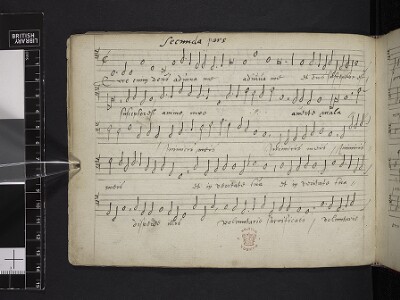 Secunda pars
Ecce enim deus adjuva me adjuva me et dns susceptor est
susceptor est anime mee averte mala
inimicis meis inimicis meis inimicis
meis et in veritate tua et in veritate tua,
disperde illos voluntarie sacrificabo, voluntarie